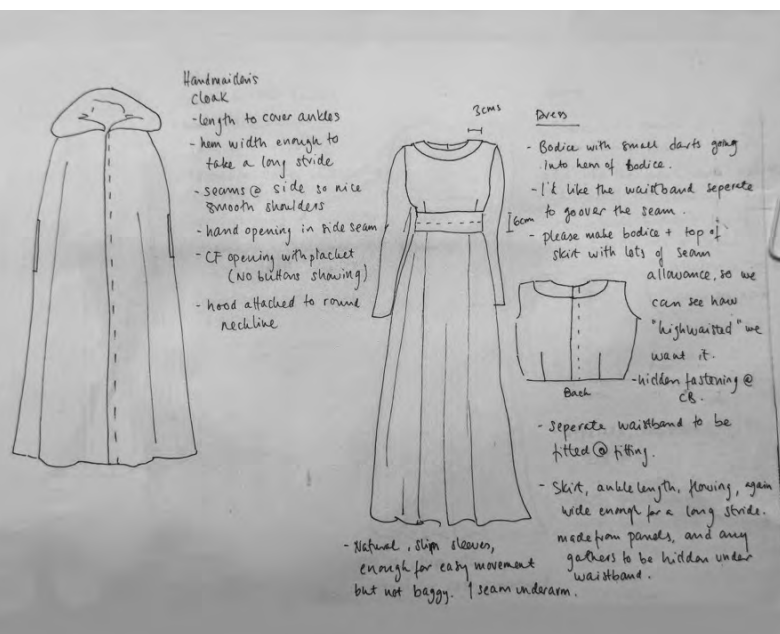 Handmaiden's
Cloak
- length to cover ankles
- hem width enough to
take a long stride
- seams @ side so nice
smooth shoulders
- hand opening in side seam
- CF opening with placket
(NO buttons showing)
- hood attached to round
neckline
3cms
Dress
- Bodice with small darts going
into hem of bodice.
- I'd like the waistband seperate
to go over the seam.
6cm
- please make bodice + top of
skirt with lots of seam
allowance, so we
can see how
"highwaisted" we
want it.
- hidden fastening @
CB.
Back
- seperate waistband to be
fitted @ fitting.
- Skirt, ankle length, flowing, again
wide enough for a long stride.
made from panels, and any
gathers to be hidden under
waistband.
- Natural, slim sleeves,
enough for easy movement
but not baggy. 1 seam underarm.